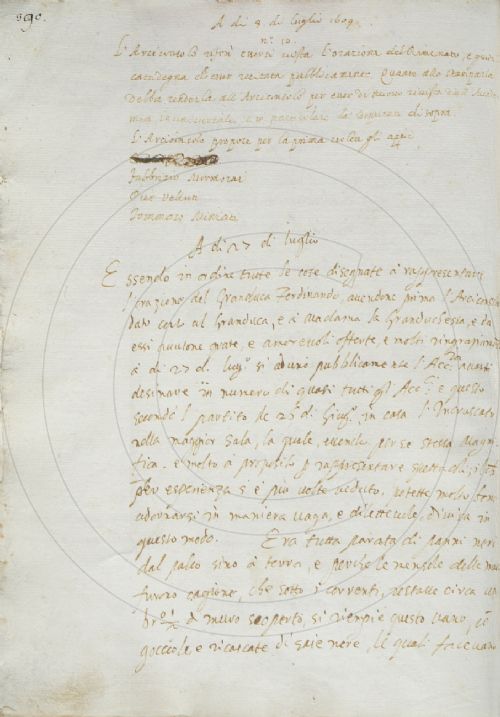 390.
A di 8 di luglio 1609.
nº 10.
L'Arciconsolo riferì essersi vista l'orazione dell'
degna di esser recitata pubblicamente. Quanto allo stamparla
debba renderla all'Arciconsolo per esser di nuovo rivista
di sopra.
L'Arciconsolo propose per la prima volta gl'
Fabbrizio
Piero
Tommaso
A di 27 di luglio
Essendo in ordine tutte le cose disegnate à rappresentarsi
l'orazione del Granduca Ferdinando, avendone prima l'Arciconso
dato conto al Granduca, e à Madama la Granduchessa, e da
essi avutone grate, e amorevoli offerte, e molto ringraziando
à di 27 di lugº si adunò pubblicamente l'Acc. avanti
desinare in numero di quasi tutti gl'Acc. e questo
secondo l partito de di Giugº in casa l'Infuscato
nella maggior sala, la quale, essendo per se stessa magni
fica, e molto à proposito p rappresentare
per esperienza s'è più volte veduto, potette molto ben
adornarsi in maniera vaga, e dilettevole, divisa in
questo modo. Era tutta parata di panni neri
dal palco sino à terra, e perche le mensole delle mura
furono cagione, che sotto i correnti, restasse circa un
br di muro scoperto, si riempiè questo vano, di
gocciole, e ricascate di saie nere, le quali facevano